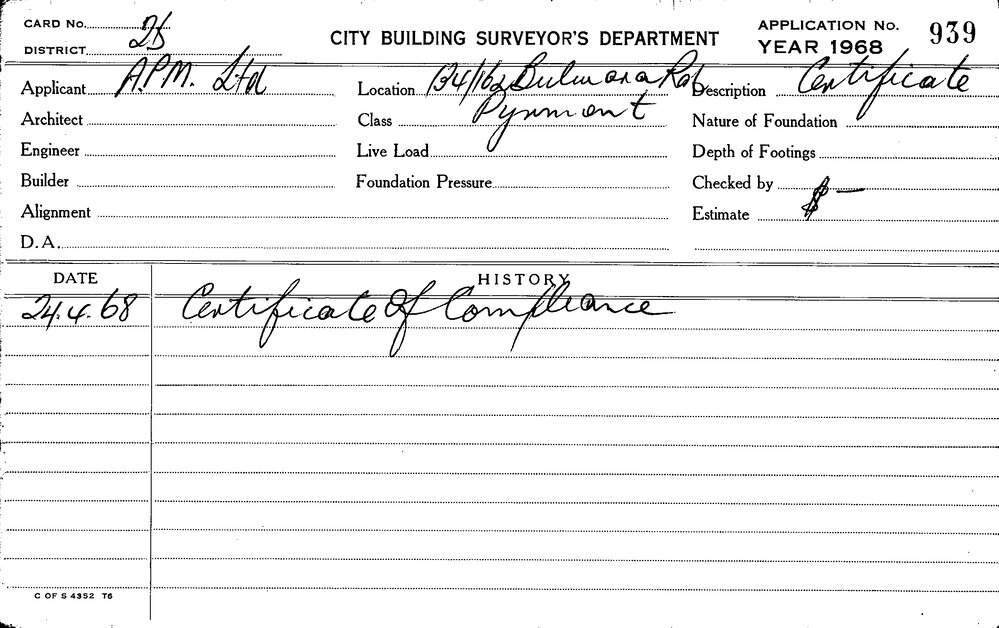 CARD No. 2b
DISTRICT
CITY BUILDING SURVEYOR'S DEPARTMENT
APPLICATION No. 939
YEAR 1968
Applicant A.P.M. Ltd
Location 134/162 Bulwara Rd
Description Certificate
Architect
Class Pyrmont
Nature of Foundation
Engineer
Live Load
Depth of Footings
Builder
Foundation Pressure
Checked by
Alignment
Estimate $ —
D.A.
DATE
HISTORY
24.4.68 Certificate Of Compliance
C OF S 4352 T6